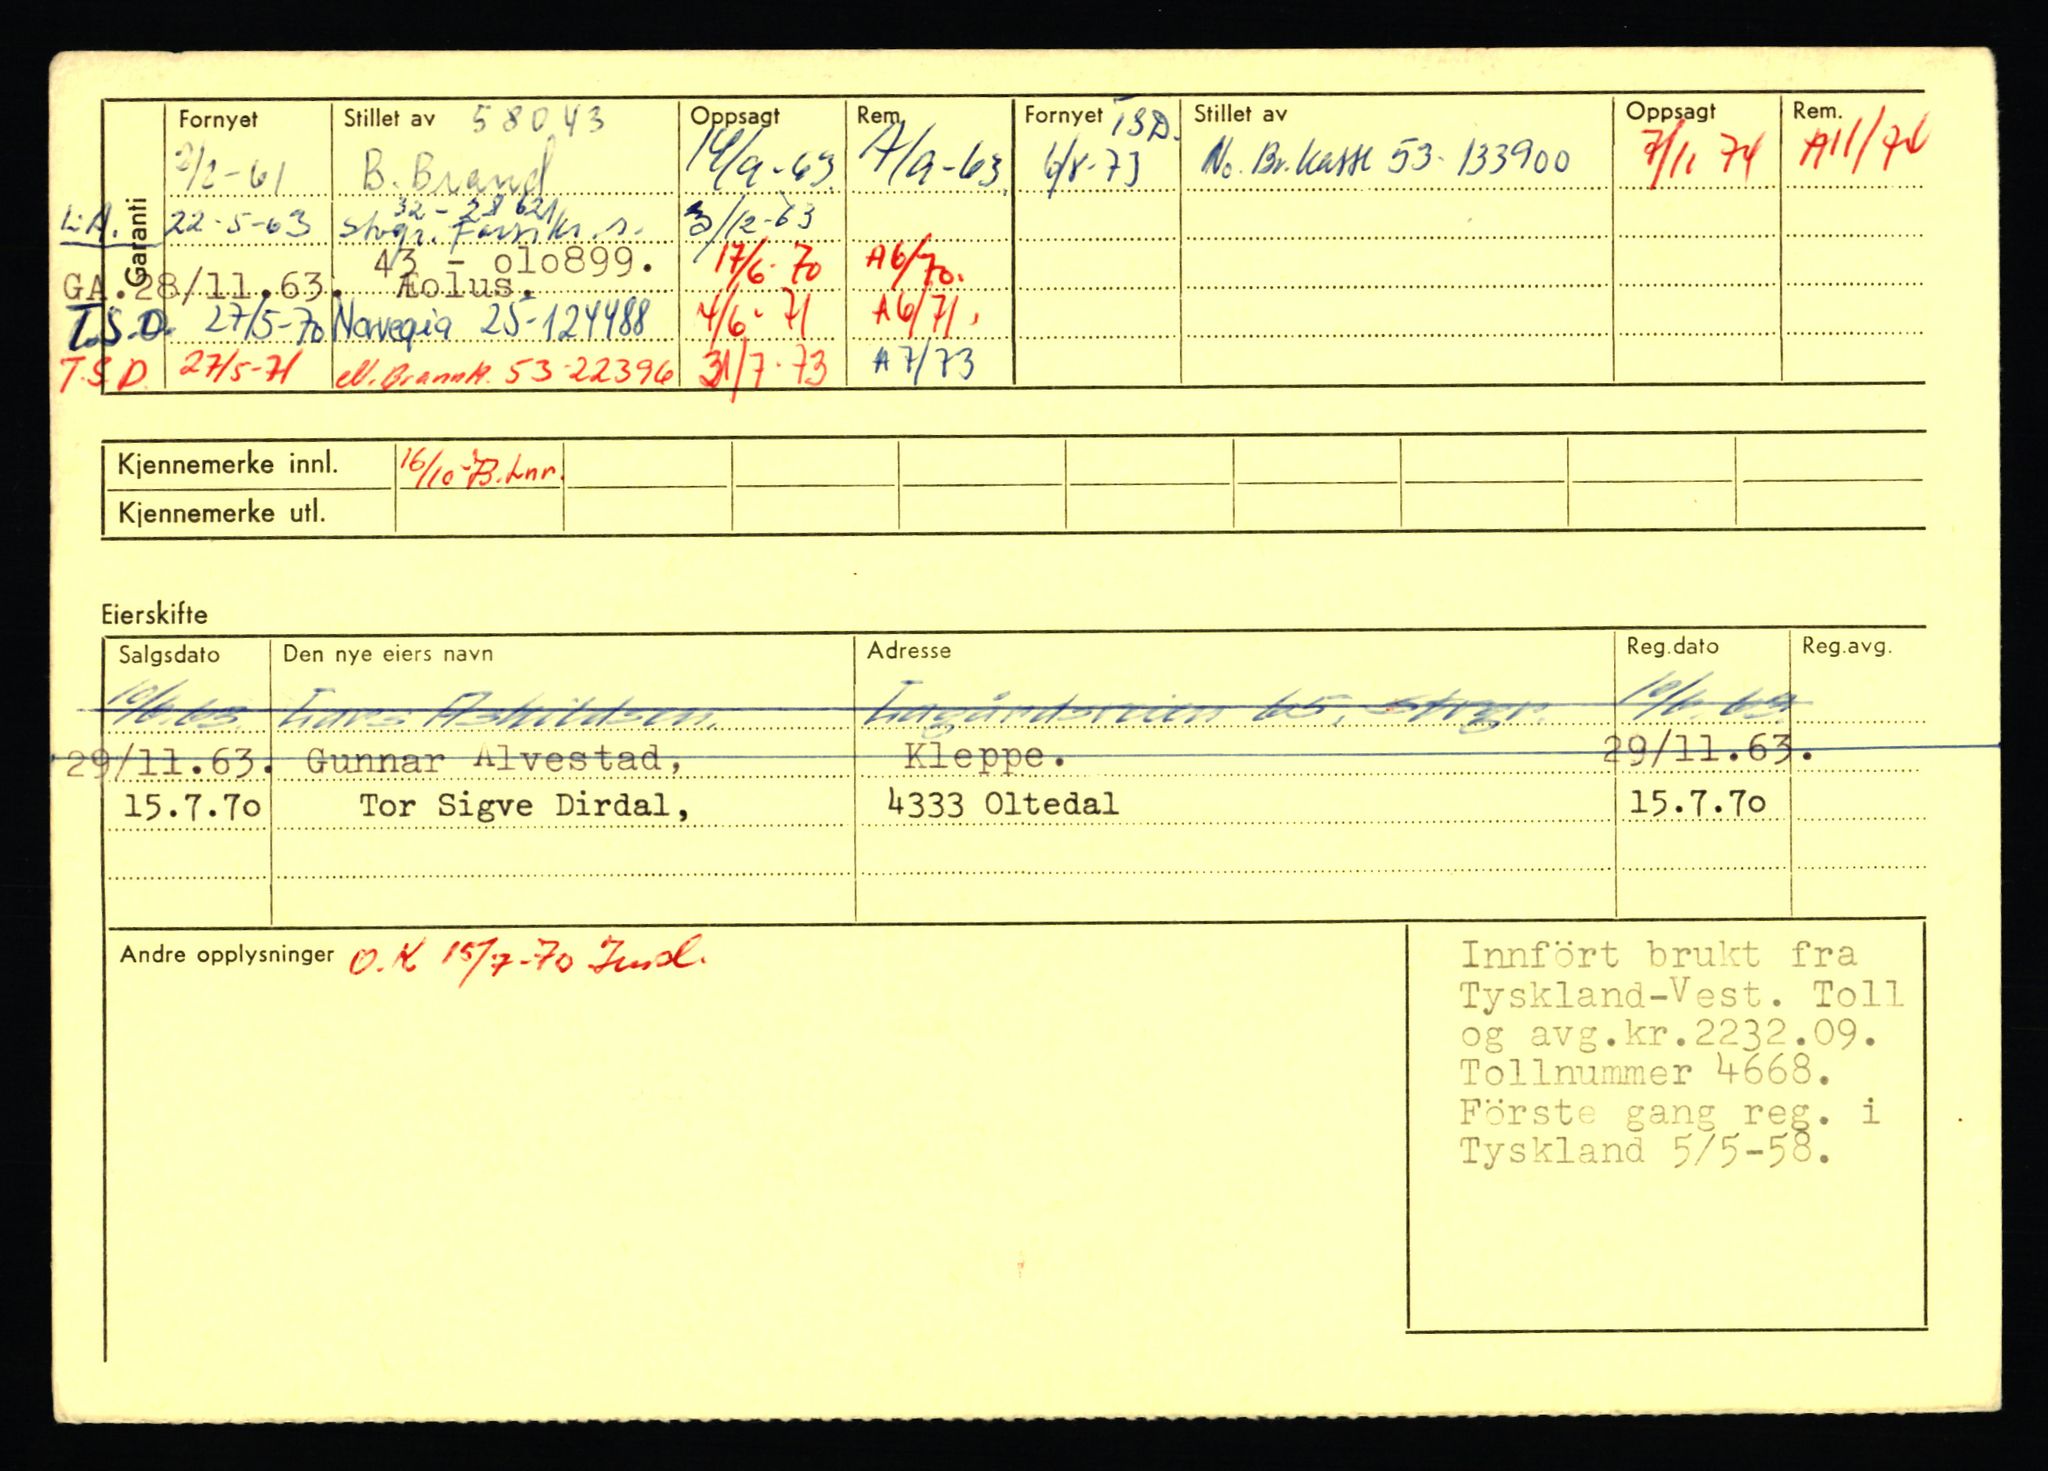 Garanti
Fornyet Stillet av 58043 Oppsagt Rem. Fornyet TSD. Stillet av Oppsagt Rem.
2/2-61 B. Brand 14/9-63 A/9-63 6/8-73 No. Br.kasse 53-133900 7/11 74 A11/74
32-28621
L.A. 22-5-63 Stvgr. 3/12-63
43 - olo899. 17/6-70 A6/70.
GA.28/11.63. Æolus.
T.S.D. 27/5-70 Norvegia 25-124488 4/6-71 A6/71.
T.S.D. 27/5-71 N. Brannk. 53-22396 31/7-73 A7/73
Kjennemerke innl. 16/10 B.Lnr.
Kjennemerke utl.
Eierskifte
Salgsdato Den nye eiers navn Adresse Reg.dato Reg.avg.
10/6.63. Lars Askildsen, Lagårdsveien 65, Stvgr. 10/6.63
29/11.63. Gunnar Alvestad, Kleppe. 29/11.63.
15.7.7o Tor Sigve Dirdal, 4333 Oltedal 15.7.7o
Andre opplysninger O.K 15/7-70
Innfört brukt fra
Tyskland-Vest. Toll
og avg.kr.2232.09.
Tollnummer 4668.
Förste gang reg. i
Tyskland 5/5-58.